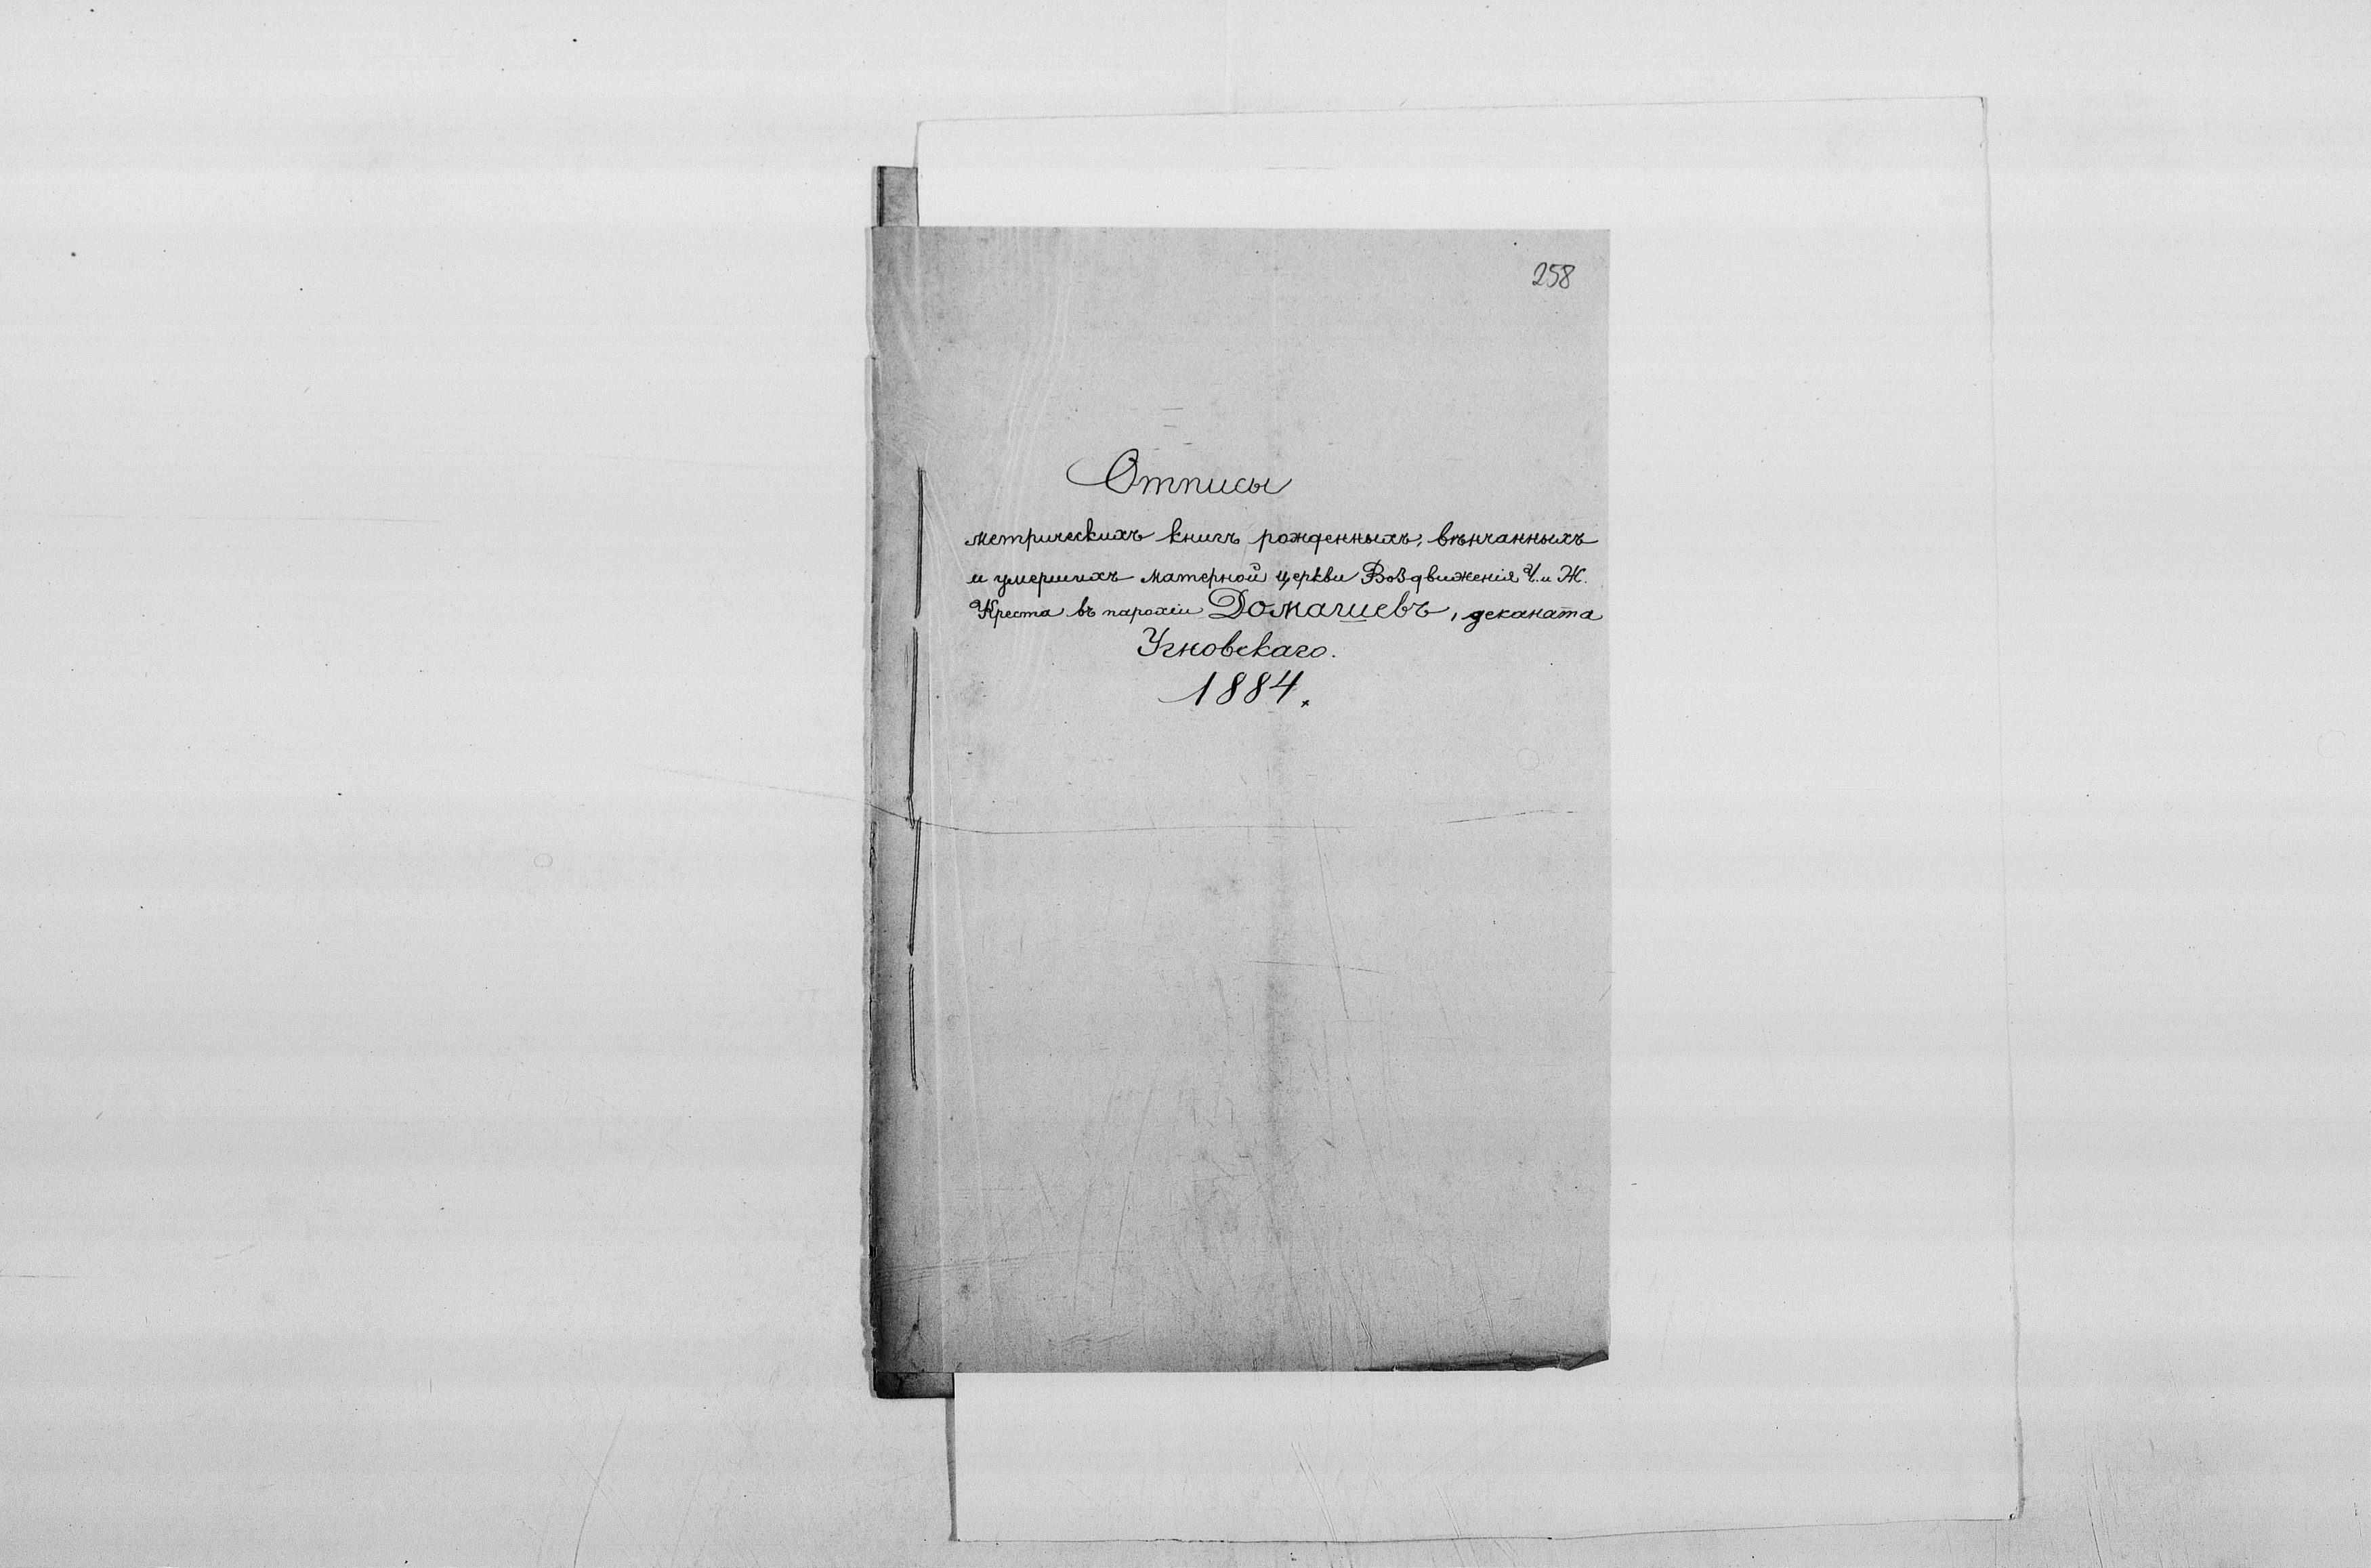 258
Отписы
метрическихъ книгъ рожденныхъ, вѣнчанныхъ
и умершихъ матерной церкви Воздвиженія Ч. и Ж.
Креста въ парохіи Домашевъ, деканата
Угновскаго.
1884.